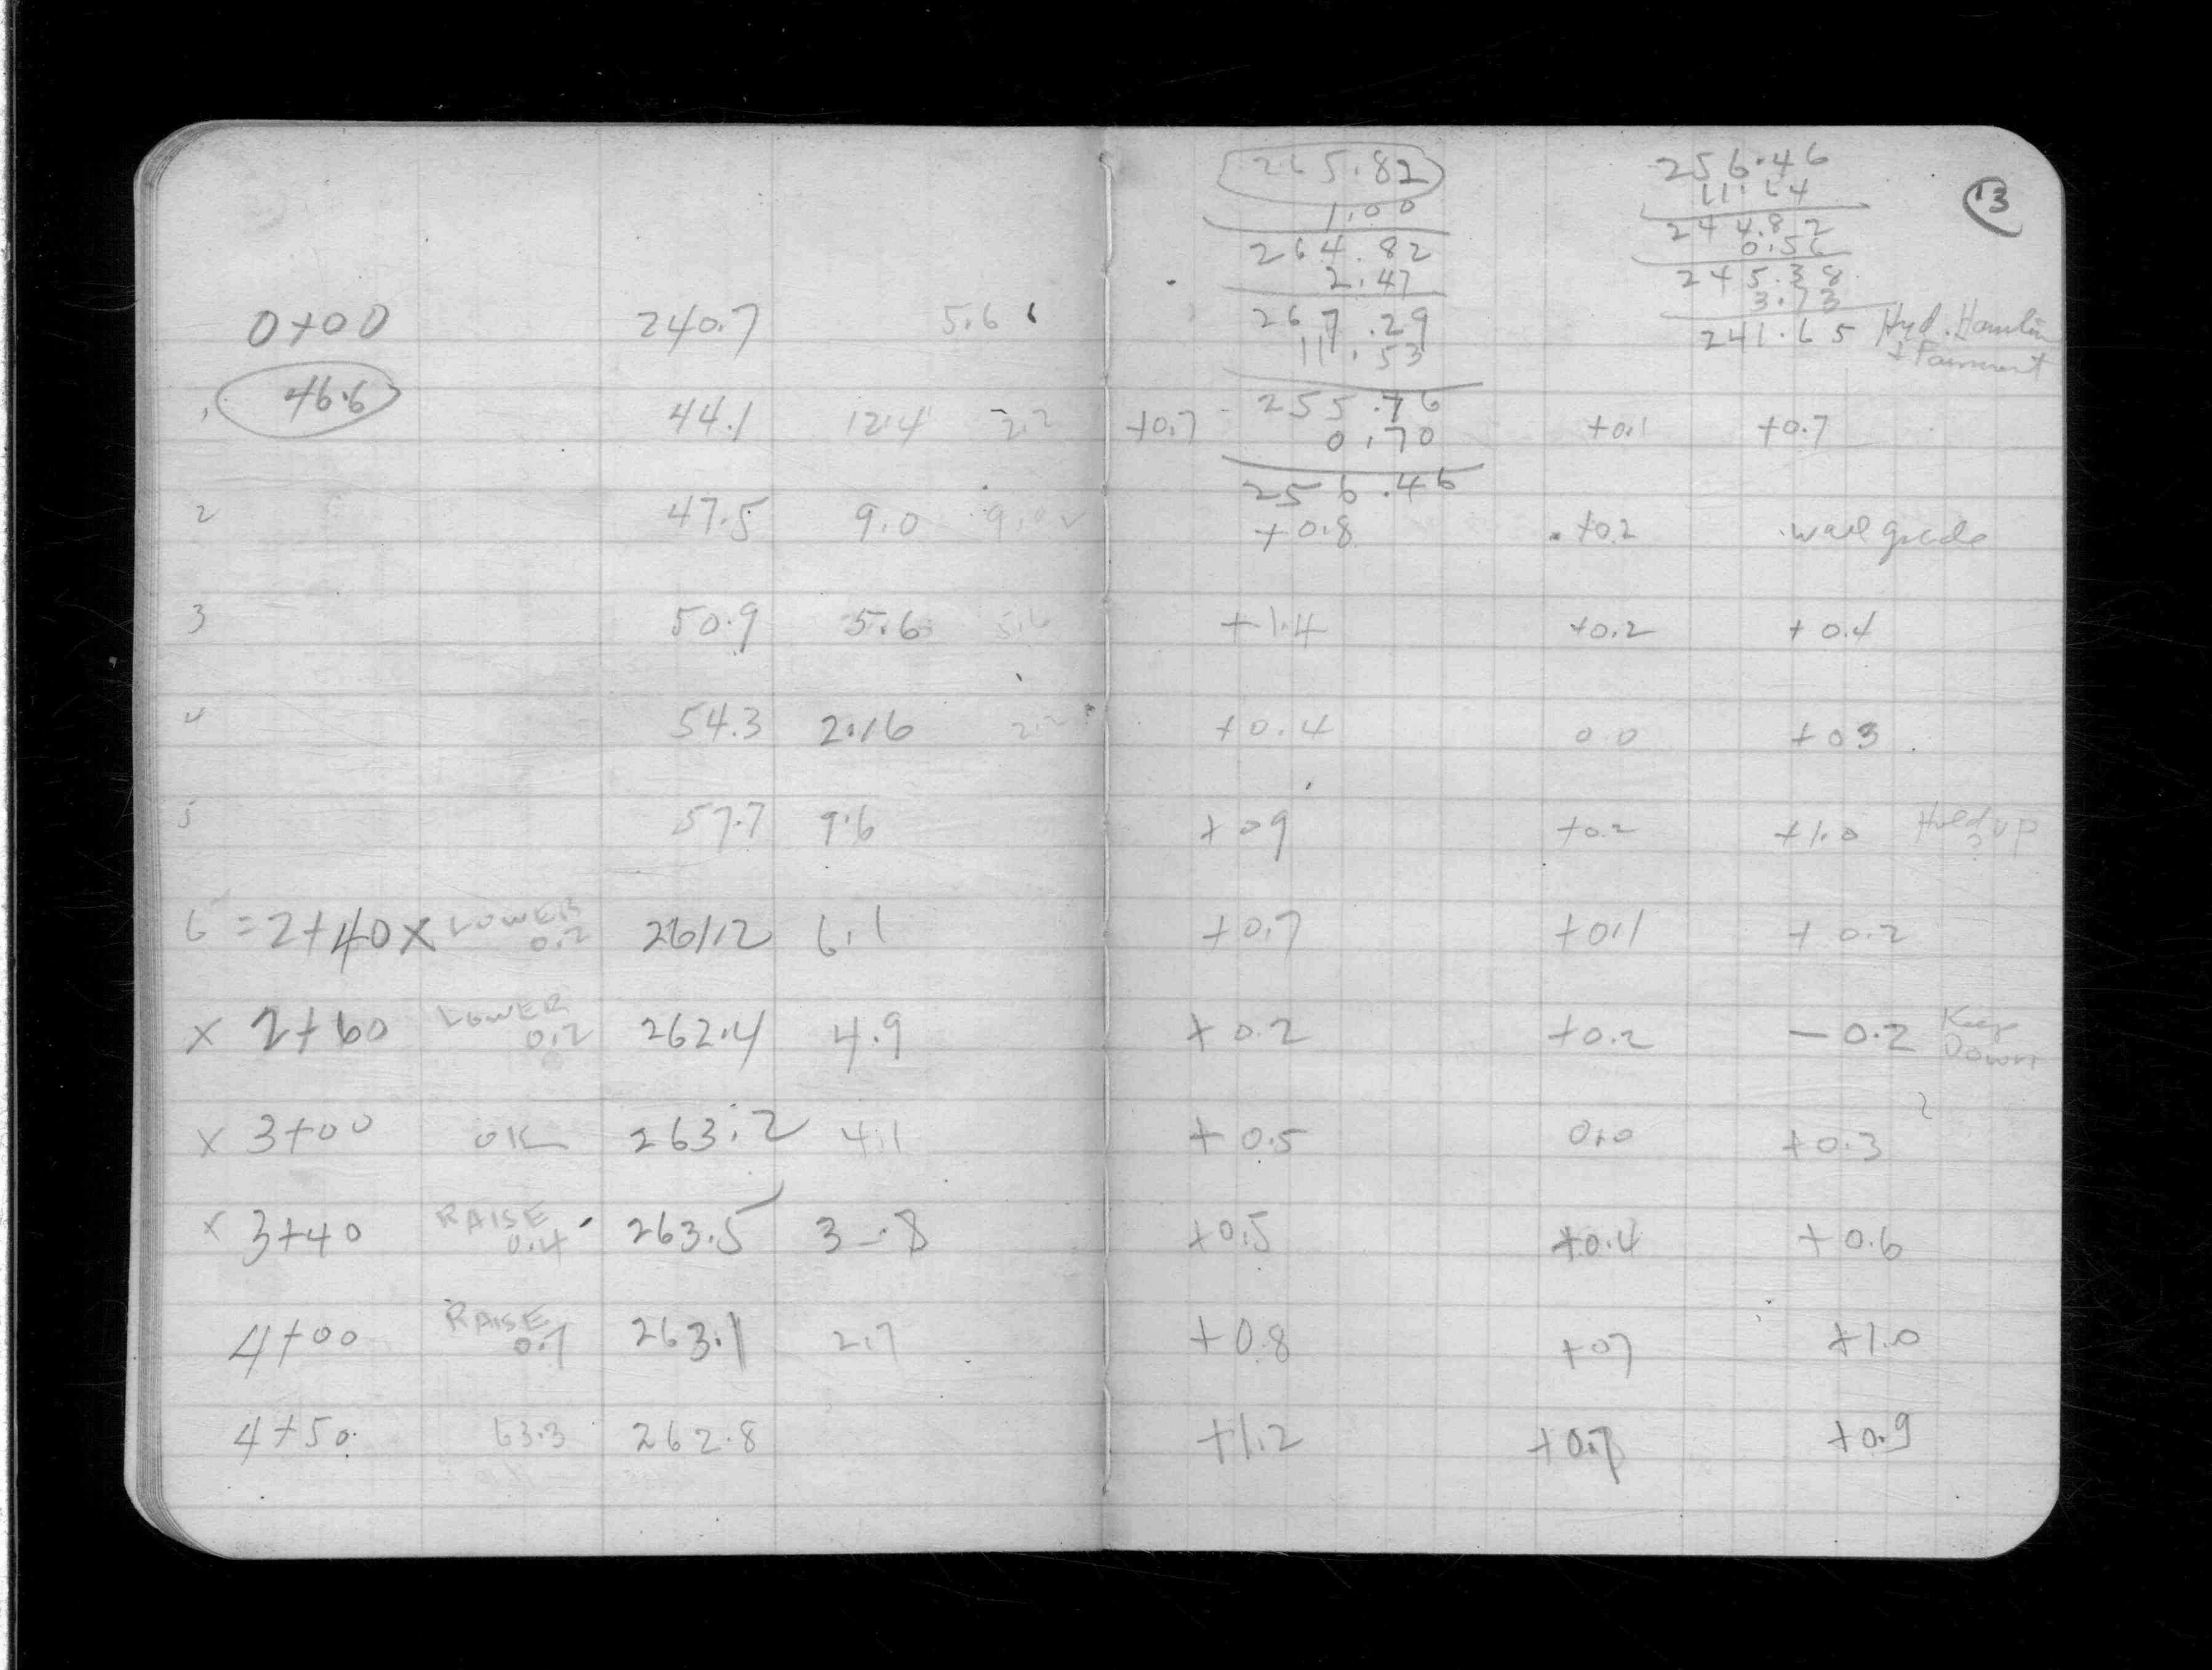 0+00 240.7 5.6
46.6
1 44.1 12.4 2.2
2 47.5 9.0 9.0
3 50.9 5.6 5.6
4 54.3 2.16 2.2
5 57.7 9.6
6 = 2+40 x LOWER 0.2 261.2 6.1
x 2+60 LOWER 0.2 262.4 4.9
x 3+00 OK 263.2 4.1
x 3+40 RAISE 0.4 263.5 3.8
4+00 RAISE 0.7 263.1 2.7
4+50 63.3 262.8
13
265.82
1.00
264.82
2.47
267.29
11.53
255.76
0.70
256.46
256.46
11.64
244.82
0.56
245.38
3.73
241.65 Hyd. Hamlin
+ Fairmount
+0.7 +0.1 +0.7
+0.8 +0.2 wall grade
+1.4 +0.2 +0.4
+0.4 0.0 +03
+09 +0.2 +1.0 Hold up
+0.7 +0.1 +0.2
+0.2 +0.2 -0.2 Keep Down
+0.5 0.0 +0.3
+0.5 +0.4 +0.6
+0.8 +07 +1.0
+1.2 +0.9